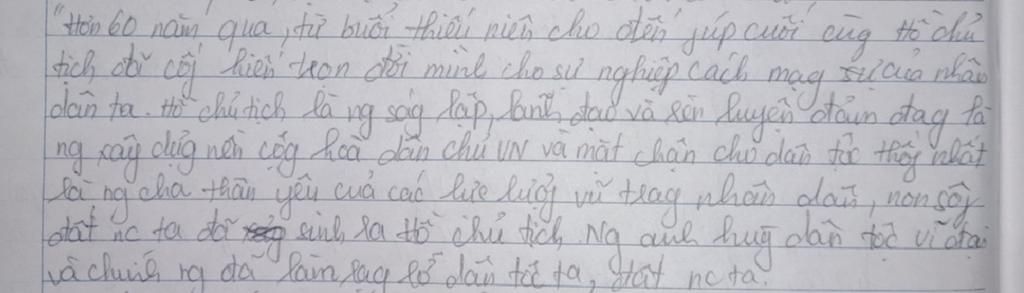 "Hơn 60 năm qua, từ buổi thiếu niên cho đến júp cuối cùg Hồ chủ
tịch đã cốg hiến trọn đời mình cho sự nghiệp cách mạg của nhân
dân ta. Hồ chủ tịch là ng ság lập, lãnh đạo và rèn luyện đảg ta
ng xây dựg nên cộg hoà dân chủ VN và mặt chận cho dân tộc thốg nhất
là ng cha thân yêu cuả các lực lượg vũ trag nhân dân, non sôg
đất nc ta đã sinh ra Hồ chủ tịch. Ng anh hùg dân tộc vĩ đại
và chính ng đã làm rạg rỡ dân tộc ta, đất nc ta.